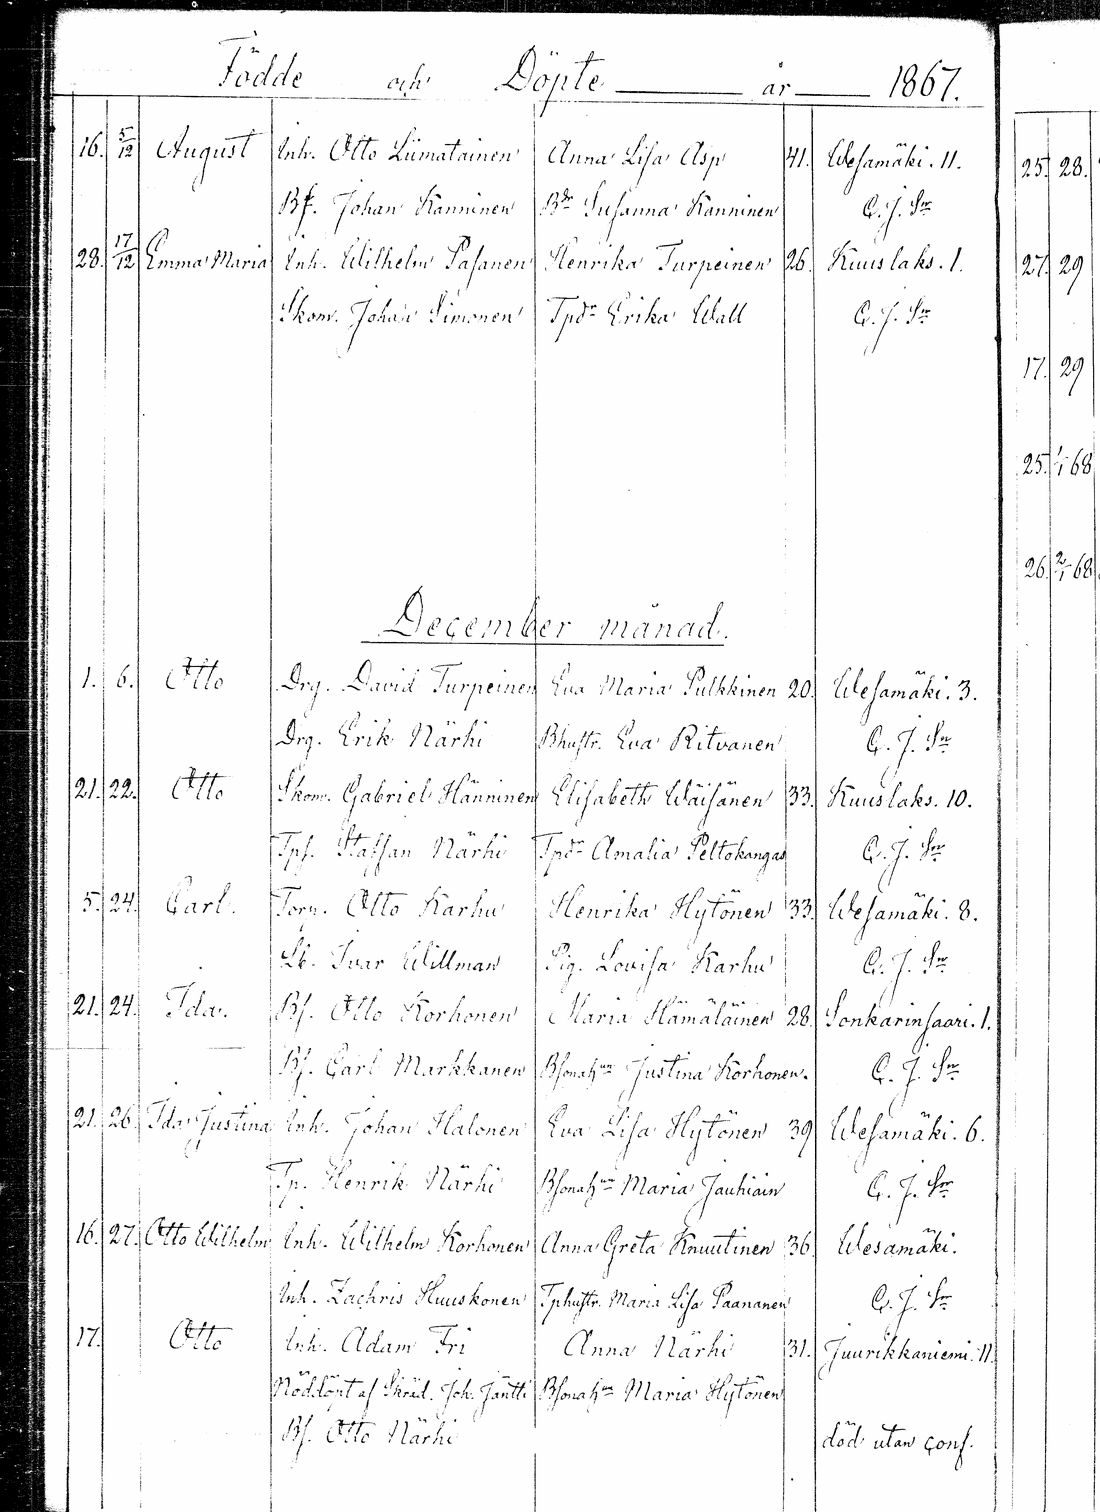 Födde och Döpte år 1867.
16. 5/12 August Inh. Otto Liimatainen Anna Lisa Asp 41. Wesamäki. 11.
Bf. Johan Kanninen Bdr Susanna Kanninen C. J. Sn
28. 17/12 Emma Maria Inh. Wilhelm Pasanen Henrika Turpeinen 26. Kuuslaks. 1.
Skom. Johan Simonen Tpdr Erika Wall C. J. Sn
December månad.
1. 6. Otto Drg. David Turpeinen Eva Maria Pulkkinen 20. Wesamäki. 3.
Drg. Erik Närhi Bhustr. Eva Ritvanen C. J. Sn
21. 22. Otto Skom. Gabriel Hänninen Elisabeth Wäisänen 33. Kuuslaks. 10.
Tps. Staffan Närhi Tpdr Amalia Peltokangas C. J. Sn
5. 24. Carl. Torp. Otto Karhu Henrika Hytönen 33. Wesamäki. 8.
Sb. Ivar Willman Pig. Lovisa Karhu C. J. Sn
21. 24. Ida. Bs. Otto Korhonen Maria Hämäläinen 28. Sonkarinsaari. 1.
Bs. Carl Markkanen Bsonah Justina Korhonen. C. J. Sn
21. 26. Ida Justina Inh. Johan Halonen Eva Lisa Hytönen 39 Wesamäki. 6.
Tp. Henrik Närhi Bsonah Maria Jauhiain C. J. Sn
16. 27. Otto Wilhelm Inh. Wilhelm Korhonen Anna Greta Knuutinen 36. Wesamäki.
Inh. Zachris Huuskonen Tphustr. Maria Lisa Paananen C. J. Sn
17. Otto Inh. Adam Fri Anna Närhi 31. Juurikkaniemi. 11.
Nöddöpt af Skräd. Joh. Jäntti Bsonah Maria Hytönen
Bs. Otto Närhi död utan conf.
25. 28.
27. 29
17. 29
25. 1/1 68
26. 2/1 68